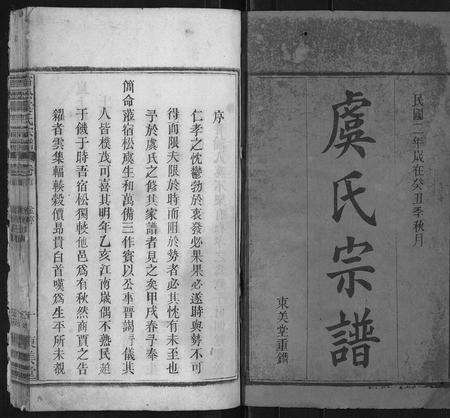 民國二年歲在癸丑季秋月
虞氏宗譜
東美堂重鐫
序
仁孝之忱鬱勃於衷發必果果必遂時與勢不可
得而限夫限於時而阻於勢者必其忱有未至也
予於虞氏之修其家譜者見之矣甲戌春予奉
簡命蒞宿松虞生和萬備三作賓以公事晋謁予儀其
人皆樸茂可喜其明年乙亥江南歲偶不熟民近
于饑于時吾宿松獨較他邑為有秋然商賈之告
糴者雲集輻輳穀價昻貴白首嘆為生平所未覩